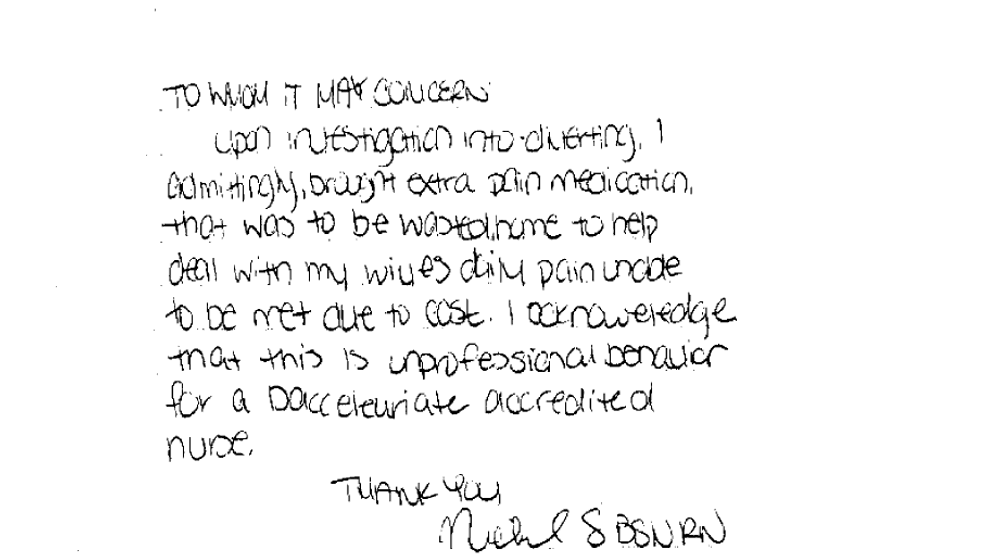 TO WHOM IT MAY CONCERN
Upon investigation into diverting, I
admittingly, brought extra pain medication,
that was to be wasted, home to help
deal with my wives daily pain unable
to be met due to cost. I acknoweledge
that this is unprofessional behavior
for a bacceleuriate accredited
nurse.
THANK YOU
Michael S BSN RN